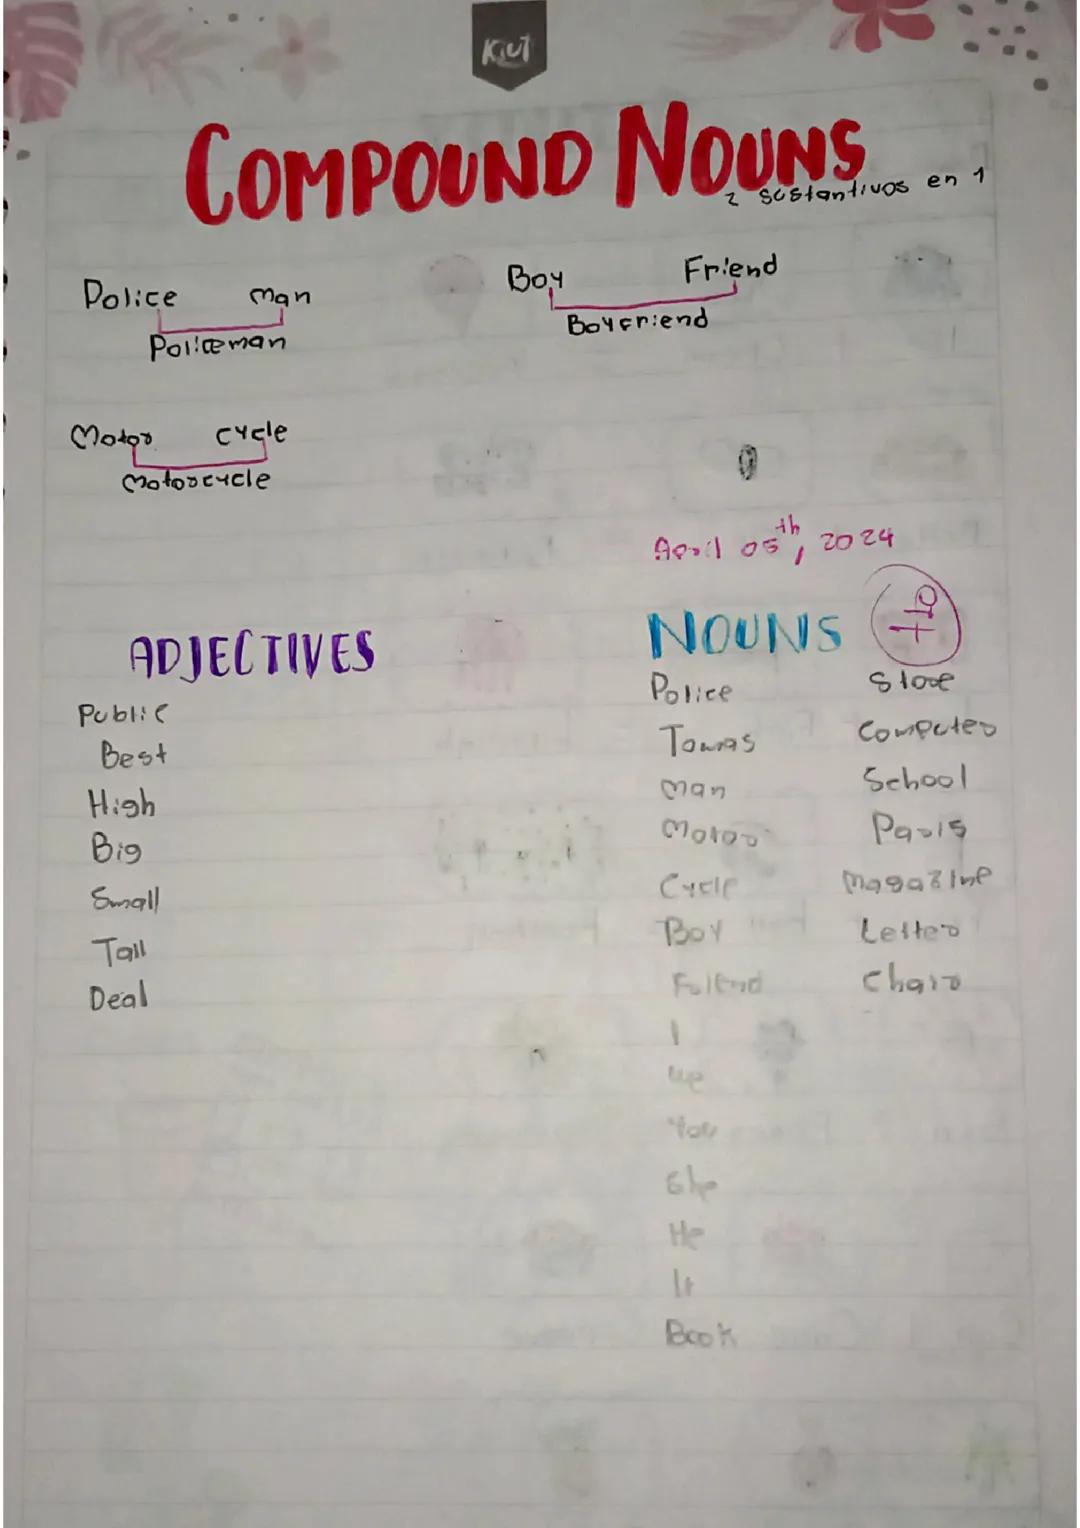 Kiut
COMPOUND NOUNS
2 sustantivos en 1
Police man
Policeman
Boy Friend
Boyfriend
Motor cycle
Motorcycle
April 05th, 2024
ADJECTIVES
Public
Best
High
Big
Small
Tall
Deal
NOUNS
Police
Towras
Man
Motor
Cycle
Boy
Friend
I
We
You
She
He
It
Book
Store
Computer
School
Paris
Magazine
Letter
Chair